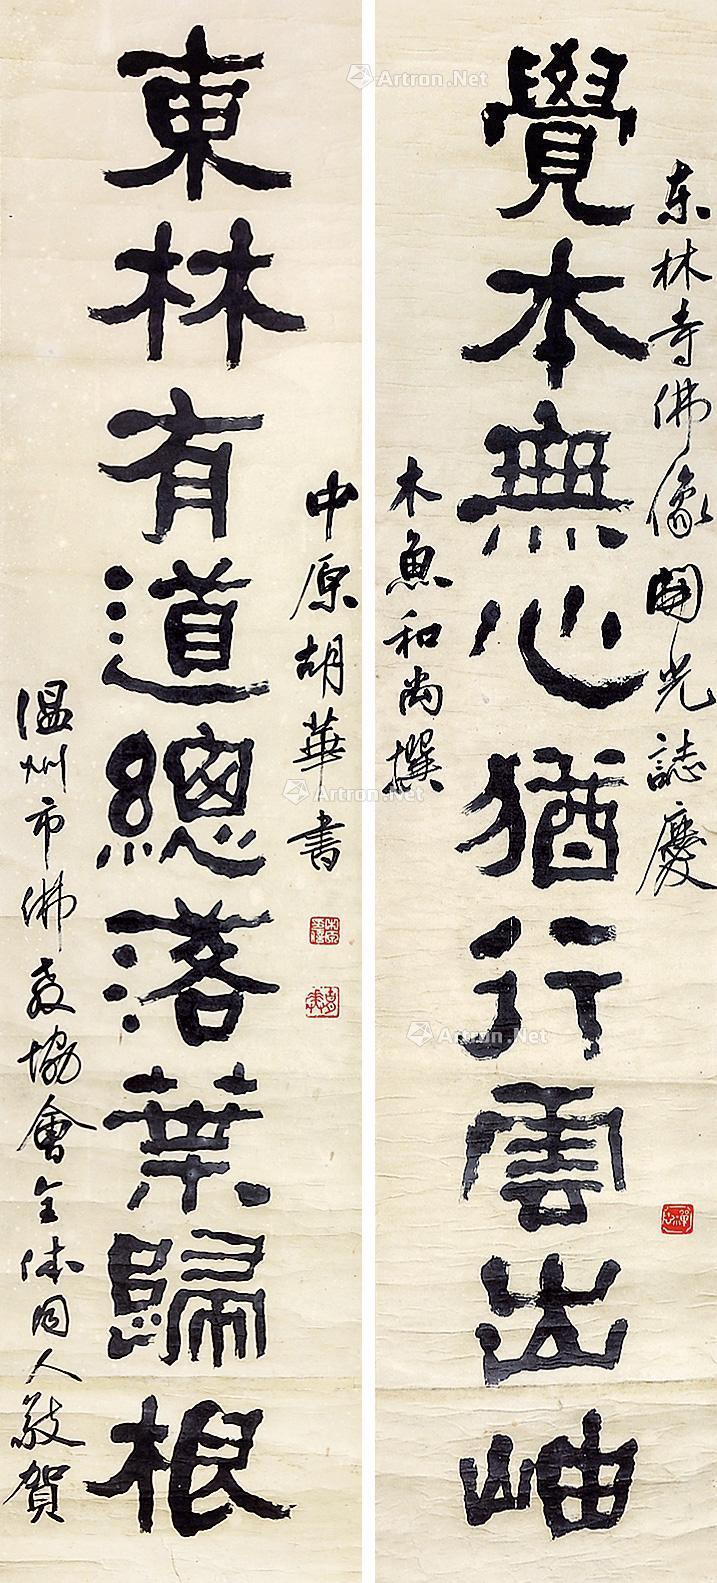 东林寺佛像開光誌慶
覺本無心猶行雲出岫
木魚和尚撰
中原胡華書
東林有道總落葉歸根
温州市佛教協會全体同人敬賀
Artron.Net
Artron.Net
Artron.Net
Artron.Net